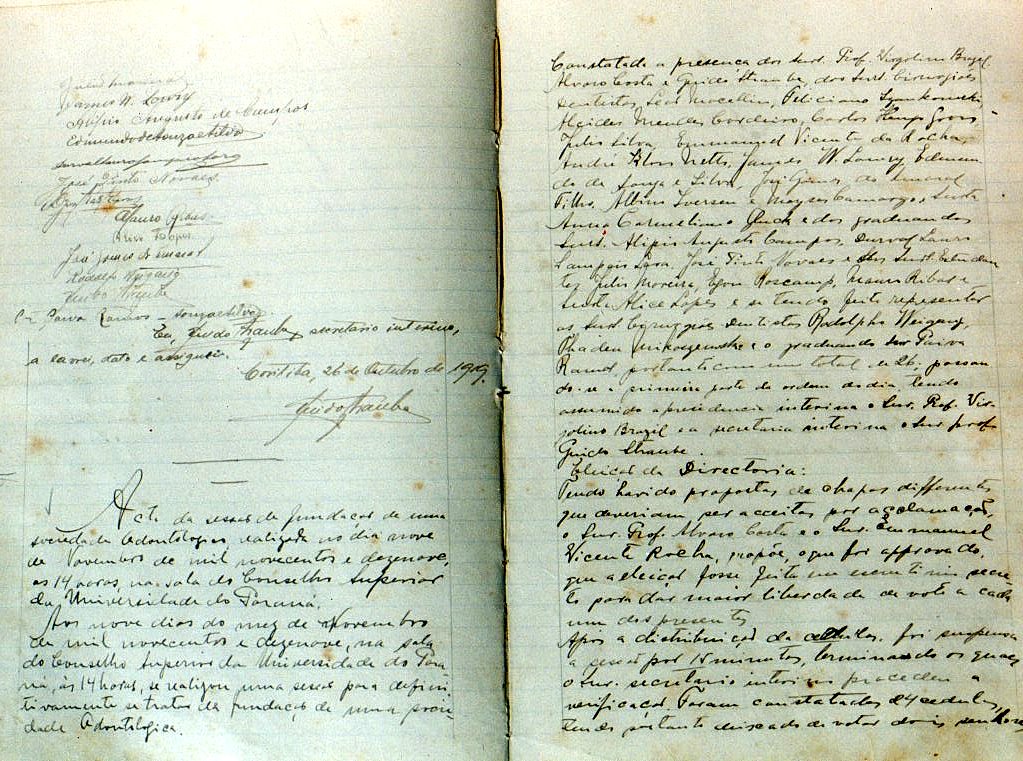 James W. Lowry
Alipio Augusto de Campos
Edmundo de Souza e Silva
José Pinto Novaes
Mauro
José Gomes do Amaral
Rodolfo Weigang
Guido Straube
Paiva Ramos
Eu, Guido Straube, secretario interino,
a lavrei, dato e assigno.
Coritiba, 26 de Outubro de 1919.
Guido Straube
Acta da sessão de fundação de uma
sociedade Odontologica, realizada no dia nove
de Novembro de mil novecentos e dezenove,
as 14 horas, na sala do Conselho Superior
da Universidade do Paraná.
Aos nove dias do mez de Novembro
de mil novecentos e dezenove, na sala
do Conselho Superior da Universidade do Para
ná, ás 14 horas, se realizou uma sessão para defini-
tivamente se tratar da fundação de uma socie-
dade Odontologica.
Constatada a presença dos Snrs. Prof. Virgolino Brazil
Alvaro Costa e Guido Straube, dos Snrs. Cirurgiões
Dentistas, Mocellin, Feliciano
Alcides Mendes Cordeiro, Carlos Gross
Julio Silva, Emmanuel Vicente da Rocha,
André Netto, James W. Lowry Edmun
do de Souza e Silva, José Gomes do Amaral
Filho, Albino Iversen e Moyses Camargo, Snrta
Anna Carmelina e dos graduandos
Snrs. Alipio Augusto Campos, Durval Lauro
José Pinto Novaes e dos Snrs. Estudan
tes Julio Moreira, Egon Roscamp, Mauro Ribas e
Snrta Alice Lopes e se tendo feito representar
os Snrs Cirurgiões dentistas Rodolpho Weigang,
e o graduando Snr Paiva
Ramos portanto com um total de 26, passan
do-se a primeira parte da ordem do dia, tendo
assumido a presidencia interina o Snr. Prof. Vir-
golino Brazil e a secretaria interina o Snr prof.
Guido Straube.
Eleição da Directoria:
Tendo havido propostas de chapas differentes
que deveriam ser acceitas por acclamação,
o Snr. Prof. Alvaro Costa e o Snr. Emmanuel
Vicente Rocha, propõe, o que foi approvado,
que a eleição fosse feita em escrutinio secre-
to para dar maior liberdade de voto a cada
um dos presentes
Após a distribuição da cedulas foi suspensa
a sessão por 15 minutos, terminando os quaes
o Snr. secretario interino procedeu a
verificação. Foram constatadas 24 cedulas,
tendo portanto deixado de votar dois senhores